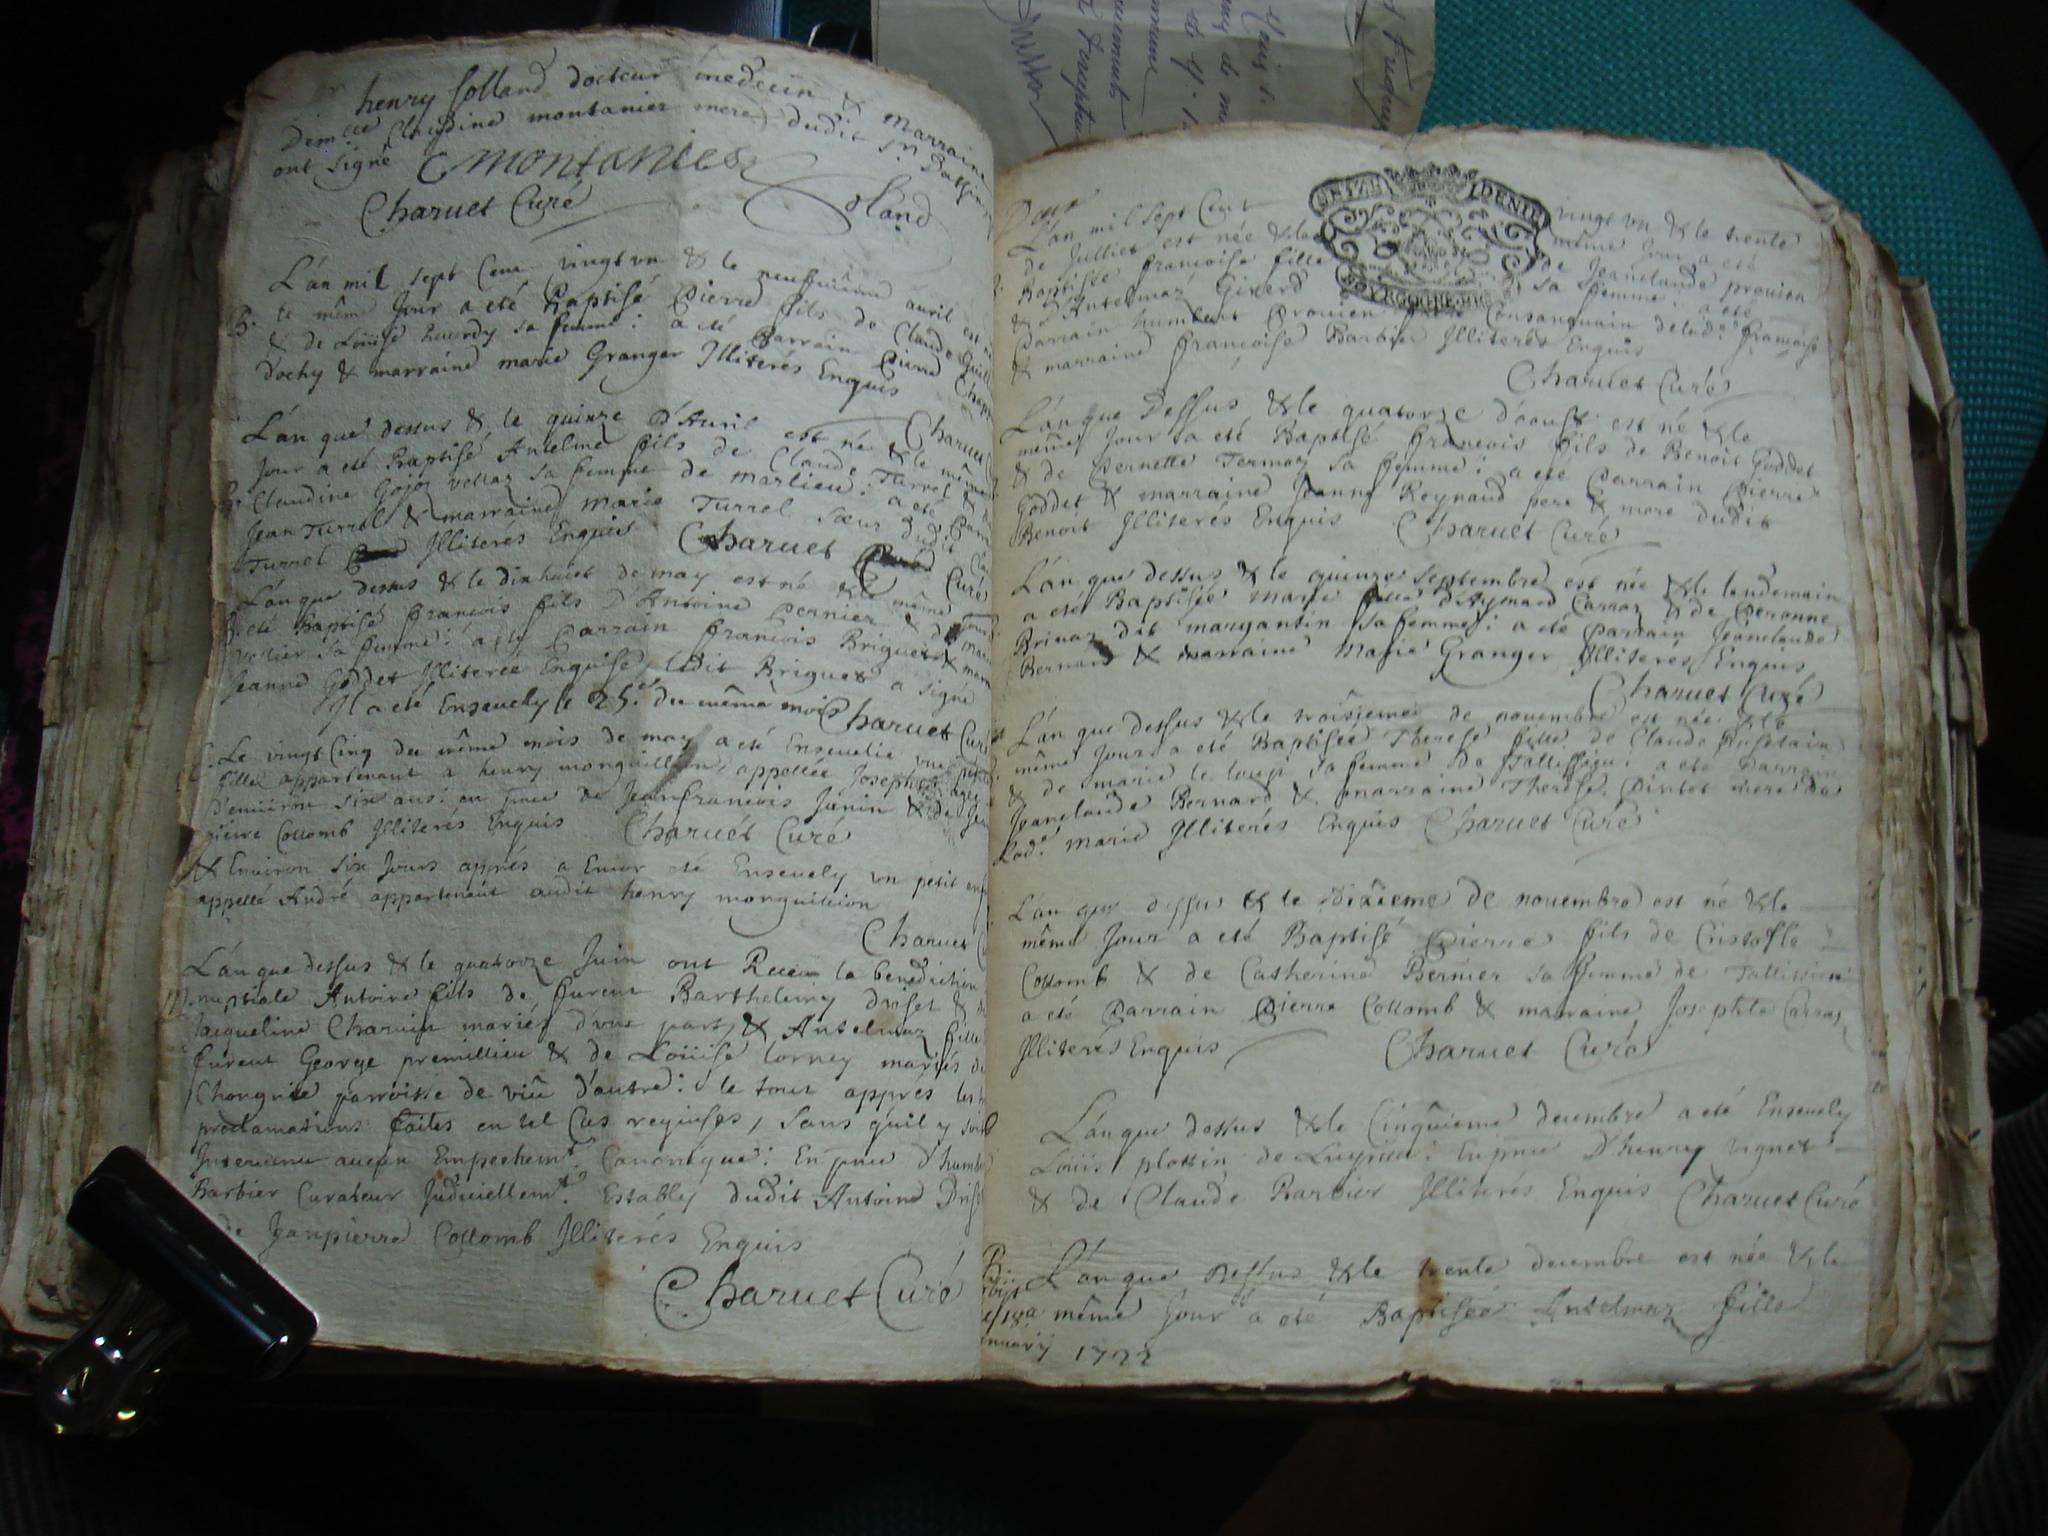 henry solland docteur medecin & marraine
Demlle Claudine montanier mere dudit Sr
ont signé C montanier
Charuet Curé Solland
L'an mil sept Cent vingt vn & le neufuieme auril est né
B. le même Jour a eté Baptisé Pierre fils de Claude
& de Loüise heurdy sa femme: a eté Parrain Pierre
d'ochy & marraine marie Granger Illiterés Enquis
Charuet
L'an que dessus & le quinze d'Auril est né & le même
Jour a eté Baptisé Antelme fils de Claude Turrel &
Claudine Gojoz vettaz sa femme de marlieu: a eté
Jean Turrel & marraine marie Turrel sœur dudit
Turrel Illiterés Enquis Charuet Curé
L'an que dessus & le dixhuict de may est né & le même Jour
B. eté Baptisé françois fils D'Antoine Pernier &
vettier sa femme: a eté Parrain françois Briguet &
Jeanne Goddet Illiterée Enquise, ledit Briguet a signé
Il a eté Enseuely le 25e du même mois Charuet Curé
Le vingt Cinq du même mois de may a eté Enseuelie vne
fille appartenant a henry monguillion, appellée Josephte
D'enuiron six ans: en pnce de Jeanfrancois Junin & de
pierre Collomb Illiterés Enquis Charuet Curé
& Enuiron six Jours aprés a Encor eté Enseuely vn petit
appellé André appartenant audit henry monguillion
Charuet
L'an que dessus & le quatorze Juin ont Receu la benediction
M. nuptiale Antoine fils de furent Barthelemy Driset &
Jacqueline Charuin mariés d'vne part, & Antelmaz fille
furent George premillieu & de Loüise Corney mariés
Chongnie parroisse de viû d'autre: le tout apprés les
proclamations faites en tel Cas requises, sans qu'il y soit
Interuenu aucun Empechemt. Canonique: En pnce d'humbert
Barbier Curateur Judiciellemt. Estably dudit Antoine
de Jeanpierre Collomb Illiterés Enquis
Charuet Curé
L'an mil sept Cent vingt vn & le trente
de Julliet est née & le même Jour a eté
Baptisée francoise fille de Jeanclaude prouien
& d'Antelmaz Girerd sa femme: a eté
Parrain humbert Prouien Consanguain de lade. françoise
& marraine françoise Barbier Illiterés Enquis
Charuet Curé
L'an que Dessus & le quatorze d'aoust est né & le
même Jour a eté Baptisé francois fils de Benoit Goddet
& de Pernette Termoz sa femme: a eté Parrain Pierre
Goddet & marraine Jeanne Reynaud pere & mere dudit
Benoit Illiterés Enquis Charuet Curé
L'an que dessus & le quinze septembre est née & le lendemain
a eté Baptisée marie fille d'Aymard Carraz & de Peronne
Briuaz dit margantin sa femme: a eté Parrain Jeanclaude
Bernard & marraine Marie Granger Illiterés Enquis
Charuet Curé
L'an que dessus & le troisieme de nouembre est née & le
même Jour a eté Baptisée Therese fille de Claude
& de marie le loup sa femme de a eté Parrain
Jeanclaude Bernard & marraine Therese mere de
Lade. marie Illiterés Enquis Charuet Curé
L'an que dessus & le dixîeme de nouembre est né & le
même Jour a eté Baptisé Pierre fils de Cristofle
Collomb & de Catherine Bernier sa femme de Tallissieu
a eté Parrain Pierre Collomb & marraine Josephte Carraz
Illiterés Enquis Charuet Curé
L'an que dessus & le Cinquieme decembre a eté Enseuely
Loüis plottin de Luyrieu: En pnce D'henry vignet
& de Claude Barbier Illiterés Enquis Charuet Curé
L'an que Dessus & le trente decembre est née & le
même Jour a eté Baptisée Antelmaz fille
1722